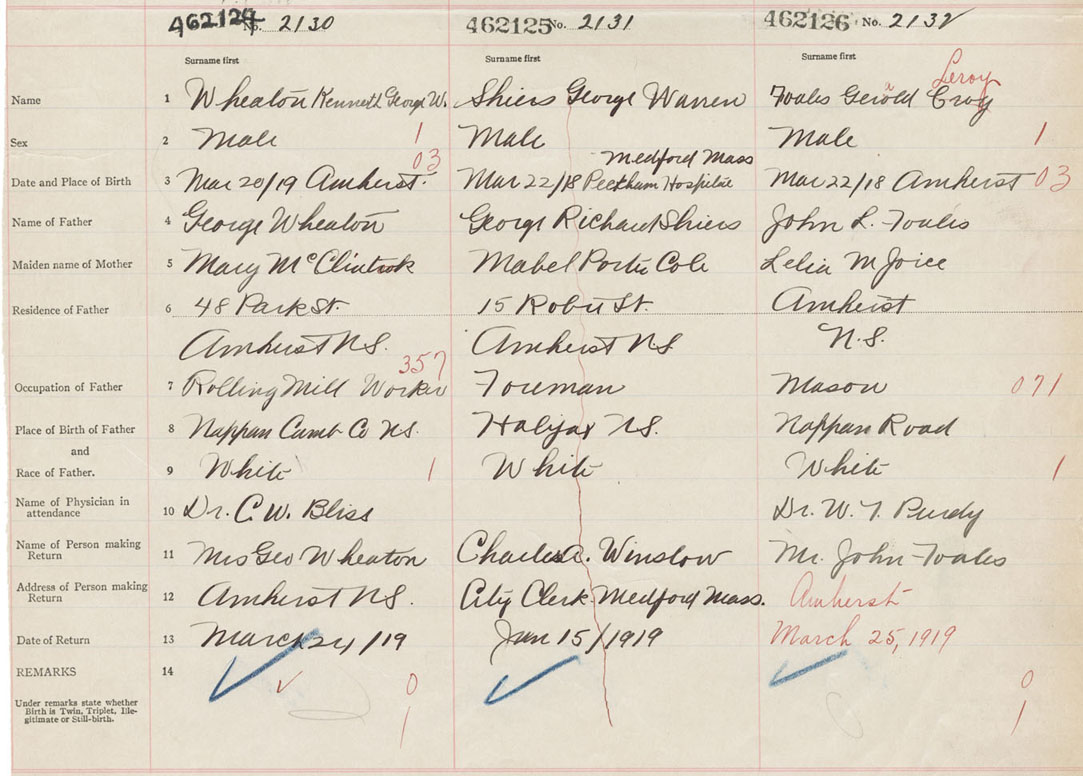 462124 No. 2130 462125 No. 2131 462126 No. 2132
Surname first Surname first Surname first
Leroy
Name 1 Wheaton Kenneth George W. Shiers George Warren Foales Gerald Croy
Sex 2 Male 1 Male Male 1
03 Medford Mass
Date and Place of Birth 3 Mar 20/19 Amherst. Mar 22/18 Hospital Mar 22/18 Amherst 03
Name of Father 4 George Wheaton George Richard Shiers John L. Foales
Maiden name of Mother 5 Mary McClintock Mabel Porter Cole Lelia M Joice
Residence of Father 6 48 Park St. 15 Robie St. Amherst
Amherst N.S. Amherst N.S. N.S.
357
Occupation of Father 7 Rolling Mill Worker Foreman Mason 071
Place of Birth of Father 8 Nappan Cumb. Co N.S. Halifax N.S. Nappan Road
and
Race of Father. 9 White 1 White White 1
Name of Physician in
attendance 10 Dr. C. W. Bliss Dr. W. T. Purdy
Name of Person making
Return 11 Mrs Geo Wheaton Charles A. Winslow Mr. John Foales
Address of Person making
Return 12 Amherst N.S. City Clerk Medford Mass. Amherst
Date of Return 13 March 24/19 Jan 15/1919 March 25, 1919
REMARKS 14
0 0
Under remarks state whether
Birth is Twin, Triplet, Ille-
gitimate or Still-birth.
1 1